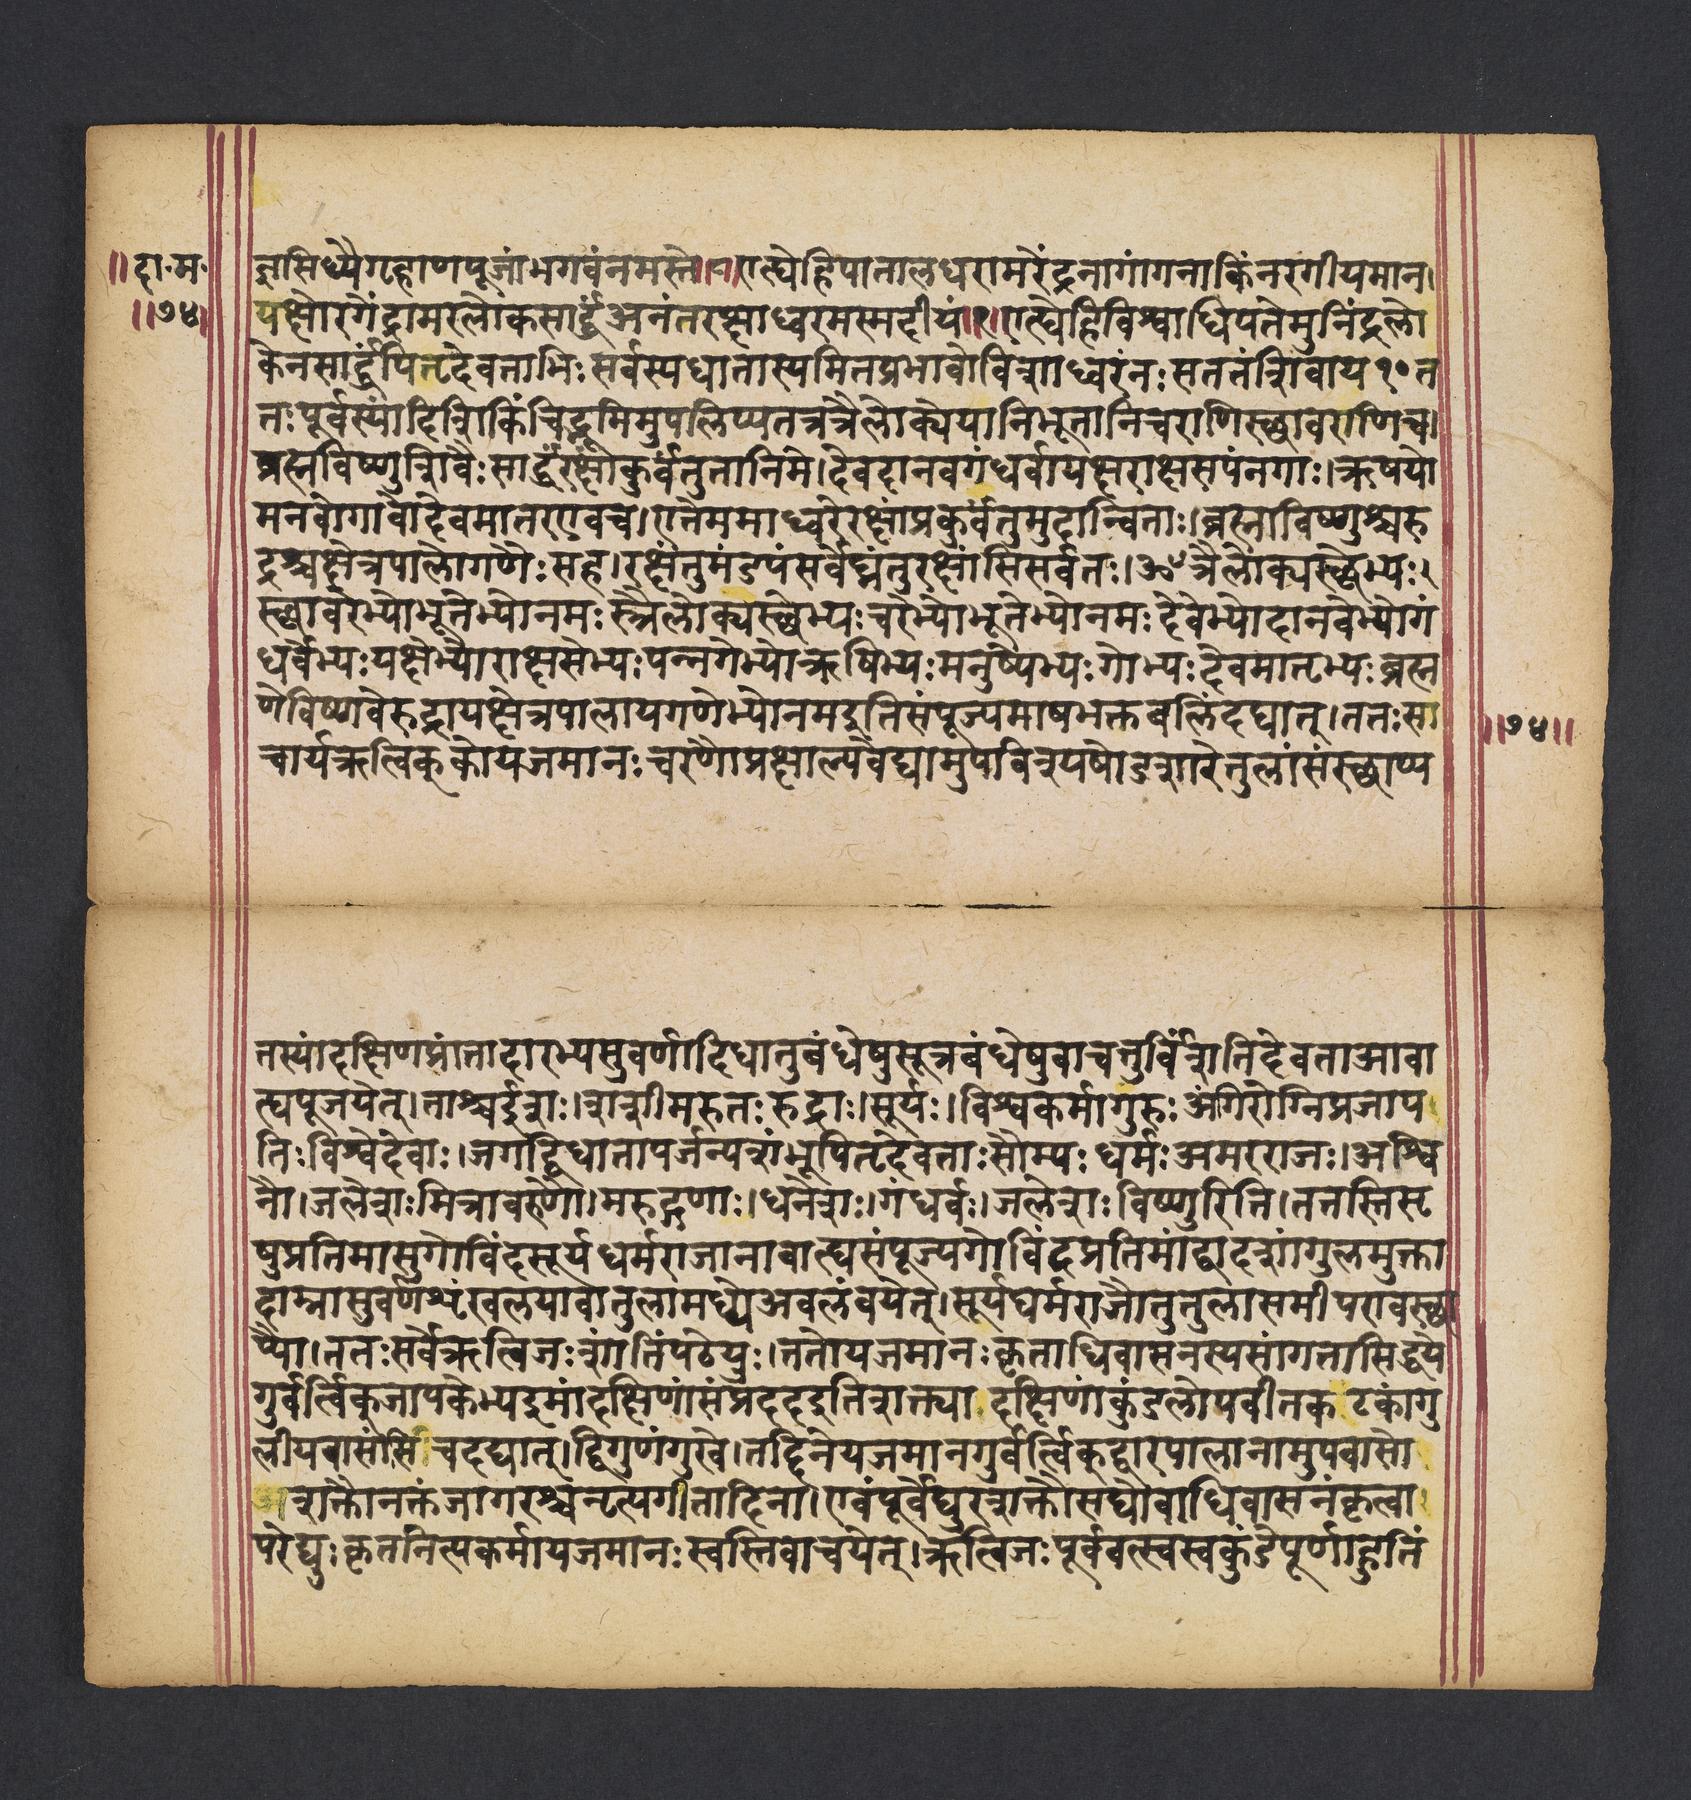 ॥दा॰म॰
॥७४॥
ज्ञसिध्यैगृहाणपूजांभगवंनमस्ते॥८॥एह्येहिपातालधरामरेंद्रनागांगनाकिंनरगीयमान।
यक्षोरगेंद्रामरलोकसार्द्धंअनंतरक्षाध्वरमस्मदीयं॥९॥एह्येहिविश्वाधिपतेमुनिंद्रलो
केनसार्द्धंपितृदेवताभिःसर्वस्यधातास्यमितप्रभावोविशाध्वरंनःसततंशिवाय१०त
तःपूर्वस्यांदिशिकिंचिद्भूमिमुपलिप्यतत्रत्रैलोक्येयानिभूतानिचराणिस्थावराणिच।
ब्रह्मविष्णुशिवैःसार्द्धंरक्षांकुर्वंतुतानिमे।देवदानवगंधर्वायक्षराक्षसपंनगाः।ऋषयो
मनवोगावोदेवमातरएवच।एतेममाध्वरेरक्षांप्रकुर्वंतुमुदान्विताः।ब्रह्माविष्णुश्चरु
द्रश्चक्षेत्रपालोगणैःसह।रक्षंतुमंडपंसर्वेघ्नंतुरक्षांसिसर्वतः।ॐत्रैलोक्यस्थेभ्यः।
स्थावरेभ्योभूतेभ्योनमःस्त्रैलोक्यस्थेभ्यःचरेभ्योभूतेभ्योनमःदेवेभ्योदानवेभ्योगं
धर्वेभ्यःयक्षेभ्योराक्षसेभ्यःपन्नगेभ्योऋषिभ्यःमनुष्येभ्यःगोभ्यःदेवमातृभ्यःब्रह्म
णेविष्णवेरुद्रायक्षेत्रपालायगणेभ्योनमइतिसंपूज्यमाषभक्तबलिंदद्यात्।ततःसा
चार्यऋत्विक्कोयजमानःचरणौप्रक्षाल्यवेद्यामुपविश्यषोडशारेतुलांसंस्थाप्य
॥७४॥
तस्यांदक्षिणप्रांतादारभ्यसुवर्णादिधातुबंधेषुसूत्रबंधेषुवाचतुर्विंशतिदेवताआवा
ह्यपूजयेत्।ताश्चईशः।शशीमरुतःरुद्राः।सूर्यः।विश्वकर्मागुरुःअंगिरोग्निप्रजाप
तिःविश्वेदेवाः।जगद्विधातापर्जन्यशंभूपितृदेवताःसौम्यःधर्मःअमरराजः।अश्वि
नौ।जलेशःमित्रावरुणौ।मरुद्गणाः।धनेशः।गंधर्वः।जलेशःविष्णुरिति।ततस्तिसृ
षुप्रतिमासुगोविंदसूर्यधर्मराजानावाह्यसंपूज्यगोविंदप्रतिमांद्वादशांगुलमुक्ता
दाम्नासुवर्णशृंखलयावातुलामध्येअवलंबयेत्।सूर्यधर्मराजौतुतुलासमीपएवस्था
प्यौ।ततःसर्वेऋत्विजःशांतिंपठेयुः।ततोयजमानःकृताधिवासनस्यसांगतासिद्धये
गुर्वर्त्विक्जापकेभ्यइमांदक्षिणांसंप्रददइतिशक्त्या दक्षिणांकुंडलोपवीतकटकांगु
लीयवासांसि चदद्यात्।द्विगुणंगुरवे।तद्दिनेयजमानगुर्वर्त्विक्द्वारपालानामुपवासो
अशक्तौनक्तंजागरश्चनृत्यगीतादिना।एवंपूर्वेद्युरशक्तौसद्योवाधिवासनंकृत्वा
परेद्युःकृतनित्यकर्मायजमानःस्वस्तिवाचयेत्।ऋत्विजःपूर्ववत्स्वस्वकुंडेपूर्णाहुतिं